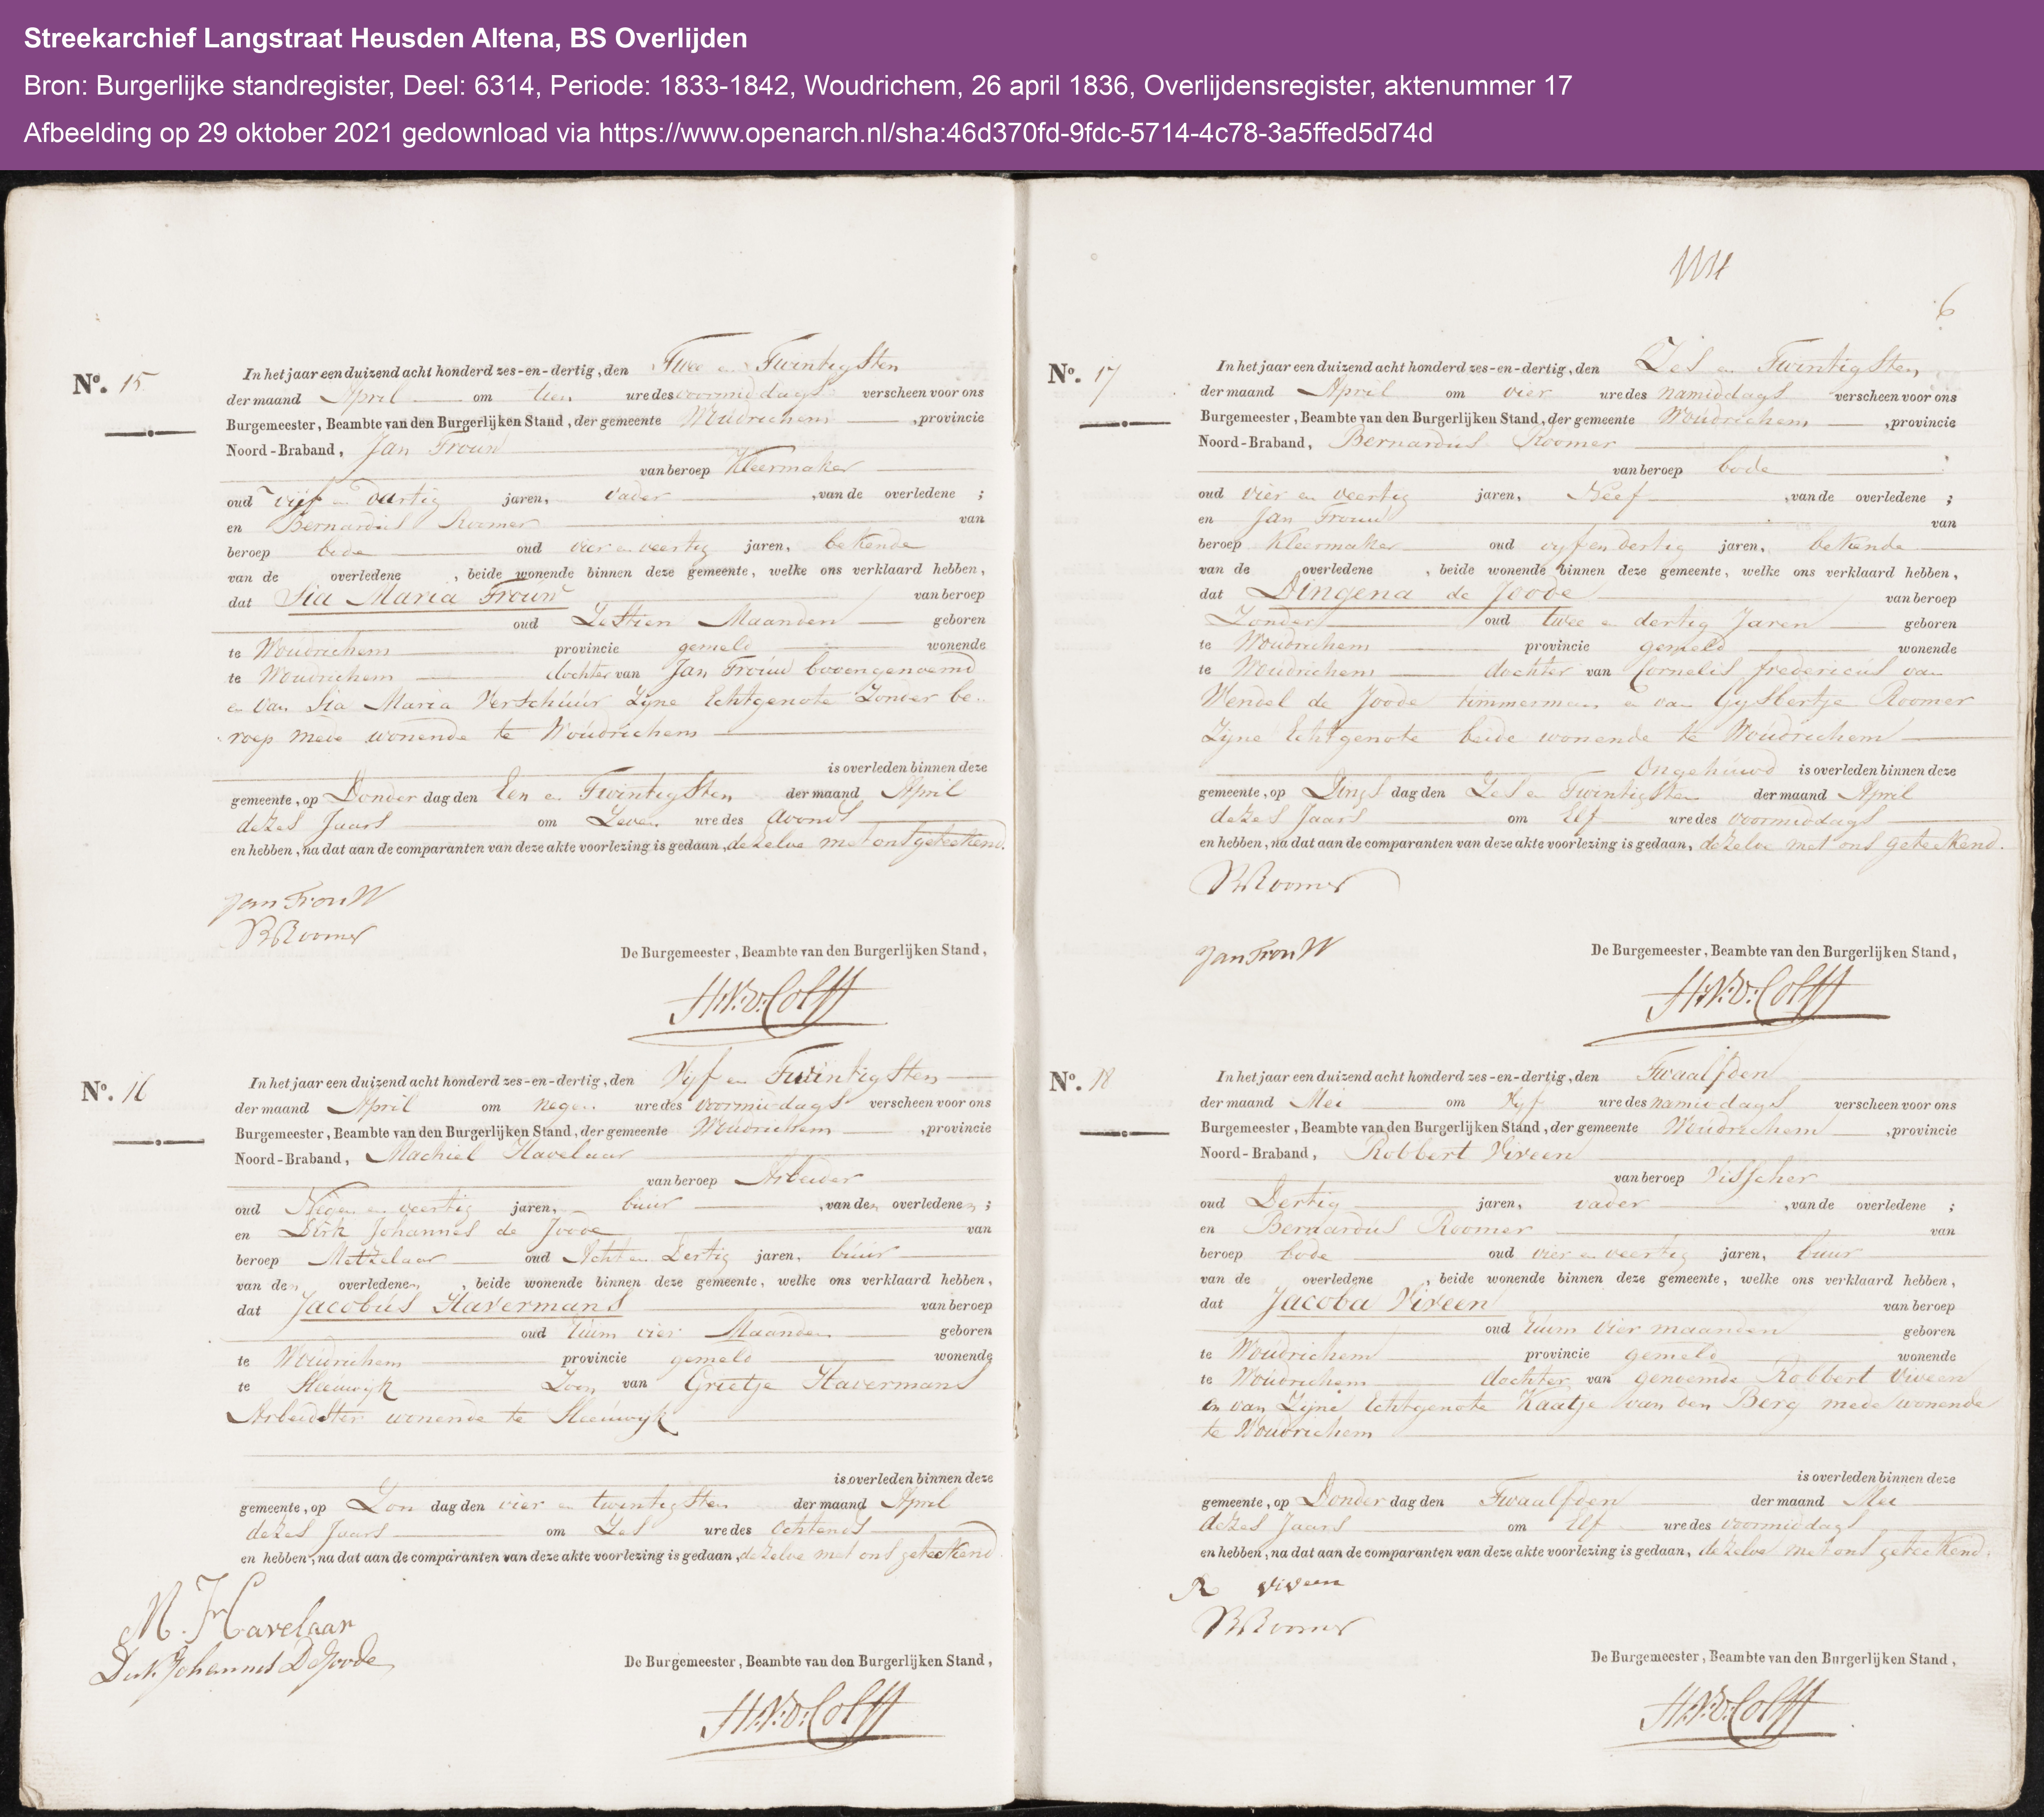 Streekarchief Langstraat Heusden Altena, BS Overlijden
Bron: Burgerlijke standregister, Deel: 6314, Periode: 1833-1842, Woudrichem, 26 april 1836, Overlijdensregister, aktenummer 17
Afbeelding op 29 oktober 2021 gedownload via https://www.openarch.nl/sha:46d370fd-9fdc-5714-4c78-3a5ffed5d74d
No. 15
In het jaar een duizend acht honderd zes-en-dertig, den Twee en Twintigsten
der maand April om tien ure des voormiddags verscheen voor ons
Burgemeester, Beambte van den Burgerlijken Stand, der gemeente Woudrichem, provincie
Noord-Braband, Jan Frouw
van beroep Kleermaker
oud vijf en dartig jaren, vader, van de overledene;
en Bernardus Roomer van
beroep bode oud vier en veertig jaren, bekende
van de overledene, beide wonende binnen deze gemeente, welke ons verklaard hebben,
dat Sia Maria Frouw van beroep
oud Zestien Maanden geboren
te Woudrichem provincie gemeld wonende
te Woudrichem dochter van Jan Frouw bovengenoemd
en van Sia Maria Verschuur Zyne Echtgenote Zonder be..
roep mede wonende te Woudrichem
is overleden binnen deze
gemeente, op Donder dag den Een en Twintigsten der maand April
dezes Jaars om Zeven ure des avonds
en hebben, na dat aan de comparanten van deze akte voorlezing is gedaan, dezelve met ons geteekend.
Jan Frouw
B Roomer
De Burgemeester, Beambte van den Burgerlijken Stand,
No. 16
In het jaar een duizend acht honderd zes-en-dertig, den Vyf en Twintigsten
der maand April om negen ure des voormiddags verscheen voor ons
Burgemeester, Beambte van den Burgerlijken Stand, der gemeente Woudrichem, provincie
Noord-Braband, Machiel Havelaar
van beroep Arbeider
oud Negen en veertig jaren, buur, van den overledenen;
en Dirk Johannes de Joode van
beroep Metzelaar oud Acht en Dertig jaren, buur
van den overledenen, beide wonende binnen deze gemeente, welke ons verklaard hebben,
dat Jacobus Havermans van beroep
oud ruim vier Maanden geboren
te Woudrichem provincie gemeld wonende
te Sleeuwyk Zoon van Grietje Havermans
Arbeidster wonende te Sleeuwyk
is overleden binnen deze
gemeente, op Zon dag den vier en twintigsten der maand April
dezes Jaars om Zes ure des ochtends
en hebben, na dat aan de comparanten van deze akte voorlezing is gedaan, dezelve met ons geteekend
M. Havelaar
Dirk Johannes De Joode
De Burgemeester, Beambte van den Burgerlijken Stand,
6
No. 17
In het jaar een duizend acht honderd zes-en-dertig, den Zes en Twintigsten
der maand April om vier ure des namiddags verscheen voor ons
Burgemeester, Beambte van den Burgerlijken Stand, der gemeente Woudrichem, provincie
Noord-Braband, Bernardus Roomer
van beroep bode
oud vier en veertig jaren, Neef, van de overledene;
en Jan Frouw van
beroep Kleermaker oud vyf en dertig jaren, bekende
van de overledene, beide wonende binnen deze gemeente, welke ons verklaard hebben,
dat Dingena de Joode van beroep
Zonder oud twee en dertig Jaren geboren
te Woudrichem provincie gemeld wonende
te Woudrichem dochter van Cornelis fredericus van
Wendel de Joode timmerman en van Gysbertje Roomer
Zyne Echtgenote beide wonende te Woudrichem
Ongehuwd is overleden binnen deze
gemeente, op Dings dag den Zes en Twintigsten der maand April
dezes Jaars om Elf ure des voormiddags
en hebben, na dat aan de comparanten van deze akte voorlezing is gedaan, dezelve met ons geteekend.
B Roomer
Jan Frouw
De Burgemeester, Beambte van den Burgerlijken Stand,
No. 18
In het jaar een duizend acht honderd zes-en-dertig, den Twaalfden
der maand Mei om Vyf ure des namiddags verscheen voor ons
Burgemeester, Beambte van den Burgerlijken Stand, der gemeente Woudrichem, provincie
Noord-Braband, Robbert Viveen
van beroep Visscher
oud Dertig jaren, vader, van de overledene;
en Bernardus Roomer van
beroep bode oud vier en veertig jaren, buur
van de overledene, beide wonende binnen deze gemeente, welke ons verklaard hebben,
dat Jacoba Viveen van beroep
oud ruim vier maanden geboren
te Woudrichem provincie gemeld wonende
te Woudrichem dochter van genoemde Robbert Viveen
en van Zijne Echtgenote Kaatje van den Berg mede wonende
te Woudrichem
is overleden binnen deze
gemeente, op Donder dag den Twaalfden der maand Mei
dezes Jaars om Elf ure des voormiddags
en hebben, na dat aan de comparanten van deze akte voorlezing is gedaan, dezelve met ons geteekend.
R Viveen
B Roomer
De Burgemeester, Beambte van den Burgerlijken Stand,